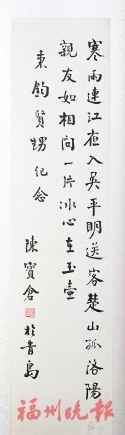 寒雨連江夜入吳平明送客楚山孤洛陽
親友如相問一片冰心在玉壺
東鈞賢甥紀念
陳寶倉
於青島
福州晚報